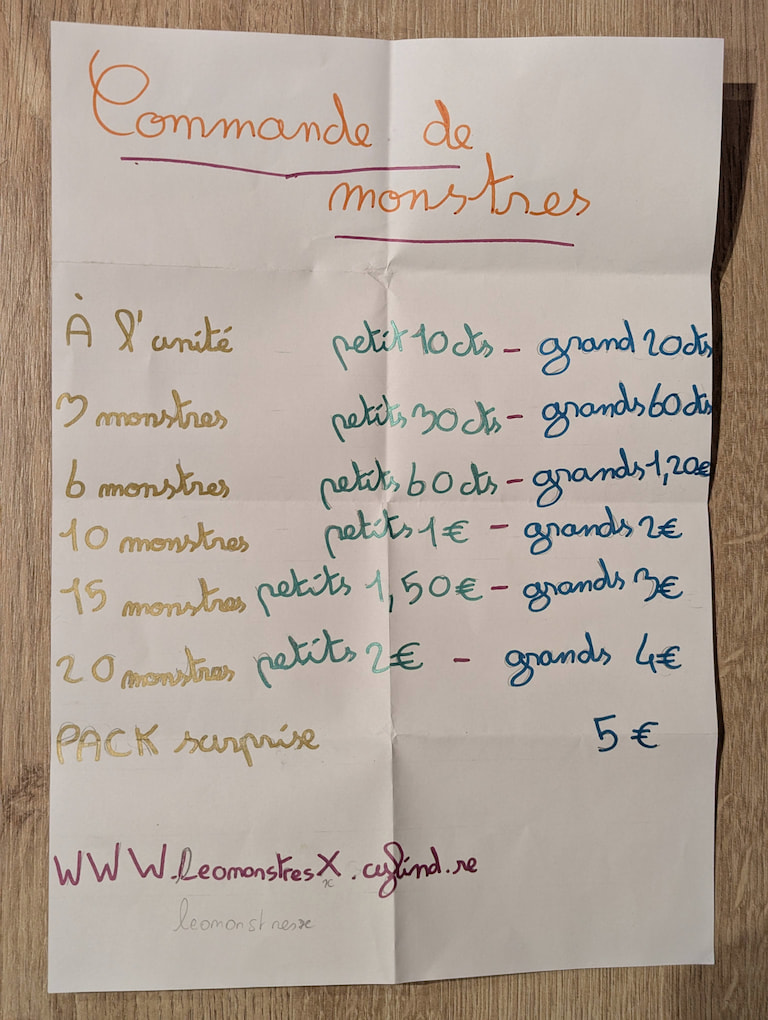 Commande de
monstres
À l'unité petit 10 cts - grand 20 cts
3 monstres petits 30 cts - grands 60 cts
6 monstres petits 60 cts - grands 1,20€
10 monstres petits 1€ - grands 2€
15 monstres petits 1,50€ - grands 3€
20 monstres petits 2€ - grands 4€
PACK surprise 5€
WWW.leomonstresX.cylind.re
x
leomonstresx